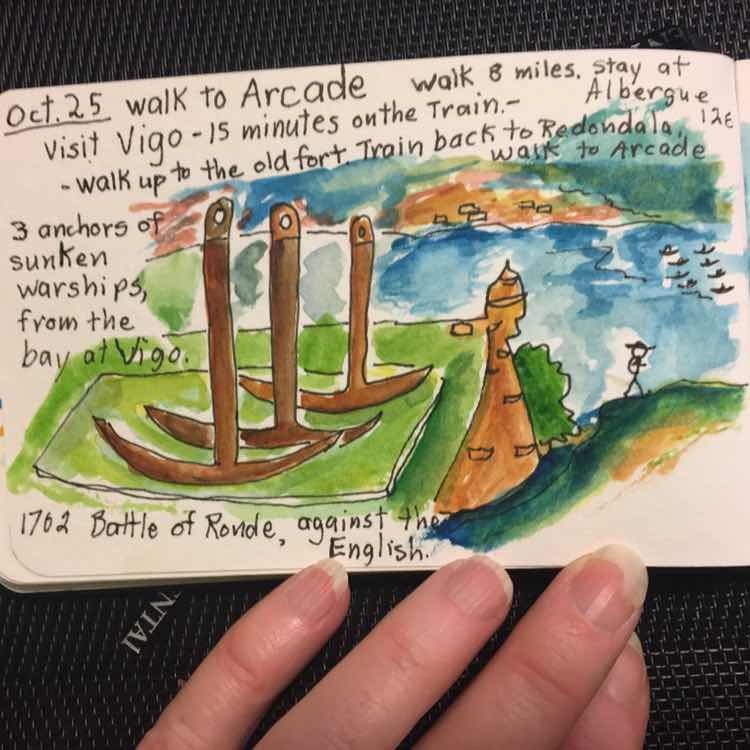 Oct. 25 walk to Arcade walk 8 miles. stay at
Albergue
12€
Visit Vigo - 15 minutes on the Train. -
- walk up to the old fort. Train back to Redondala,
walk to Arcade
3 anchors of
sunken
warships,
from the
bay at Vigo.
1762 Battle of Ronde, against the
English.
NTAI